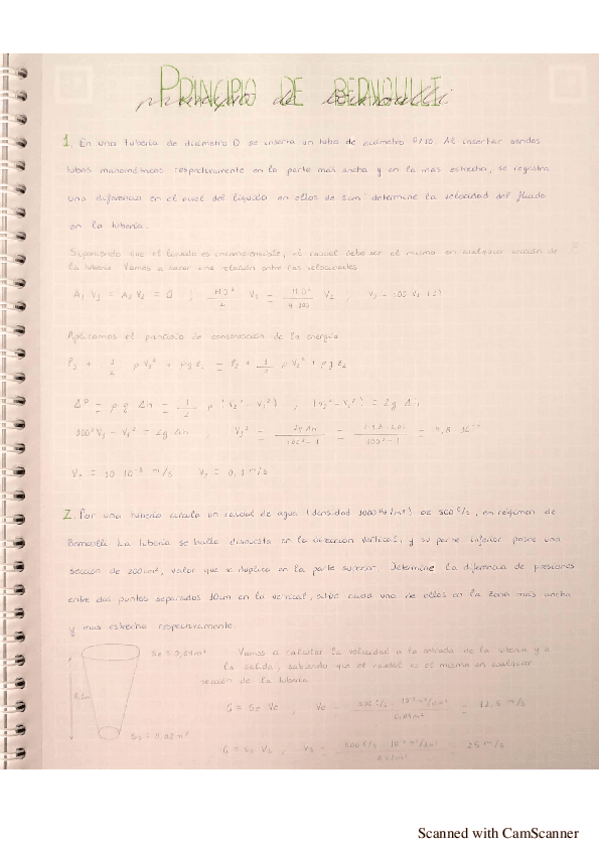 PRINCIPIO DE BERNOULLI
principio de bernoulli
1. En una tubería de diámetro D se inserta un tubo de diámetro D/10. Al insertar sendos
tubos manométricos respectivamente en la parte más ancha y en la más estrecha, se registra
una diferencia en el nivel del líquido en ellos de 5cm determine la velocidad del fluido
en la tubería.
Suponiendo que el líquido es incompresible, el caudal debe ser el mismo en cualquier sección de
la tubería. Vamos a sacar una relación entre las velocidades
A₁ V₁ = A₂ V₂ = Q ; V₁ = V₂ ,
Aplicamos el principio de conservación de la energía
P₁ + 1/2 ρ V₁² + ρ g z₁ = P₂ + 1/2 ρ V₂² + ρ g z₂
ΔP = ρ g Δh = 1/2 ρ (V₂² - V₁²) ; (V₂² - V₁²) = 2g Δh
100² V₁² - V₁² = 2g Δh , V₁² = 2g Δh / 100² - 1 =
V₁ = 10 · 10⁻³ m/s
2. Por una tubería circula un caudal de agua (densidad 1000 kg/m³) de 500 ℓ/s, en régimen de
Bernoulli. La tubería se halla dispuesta en la dirección vertical, y su parte inferior posee una
sección de 200cm², valor que se duplica en la parte superior. Determine la diferencia de presiones
entre dos puntos separados en la vertical, sitos cada uno de ellos en la zona más ancha
y más estrecha respectivamente.
Vamos a calcular la velocidad a la entrada de la tubería y a
la salida, sabiendo que el caudal es el mismo en cualquier
sección de la tubería
Ss = 0,02m²
G = Se Ve ; Ve = = 12,5 m/s
G = Ss Vs ; Vs = = 25 m/s
Scanned with CamScanner